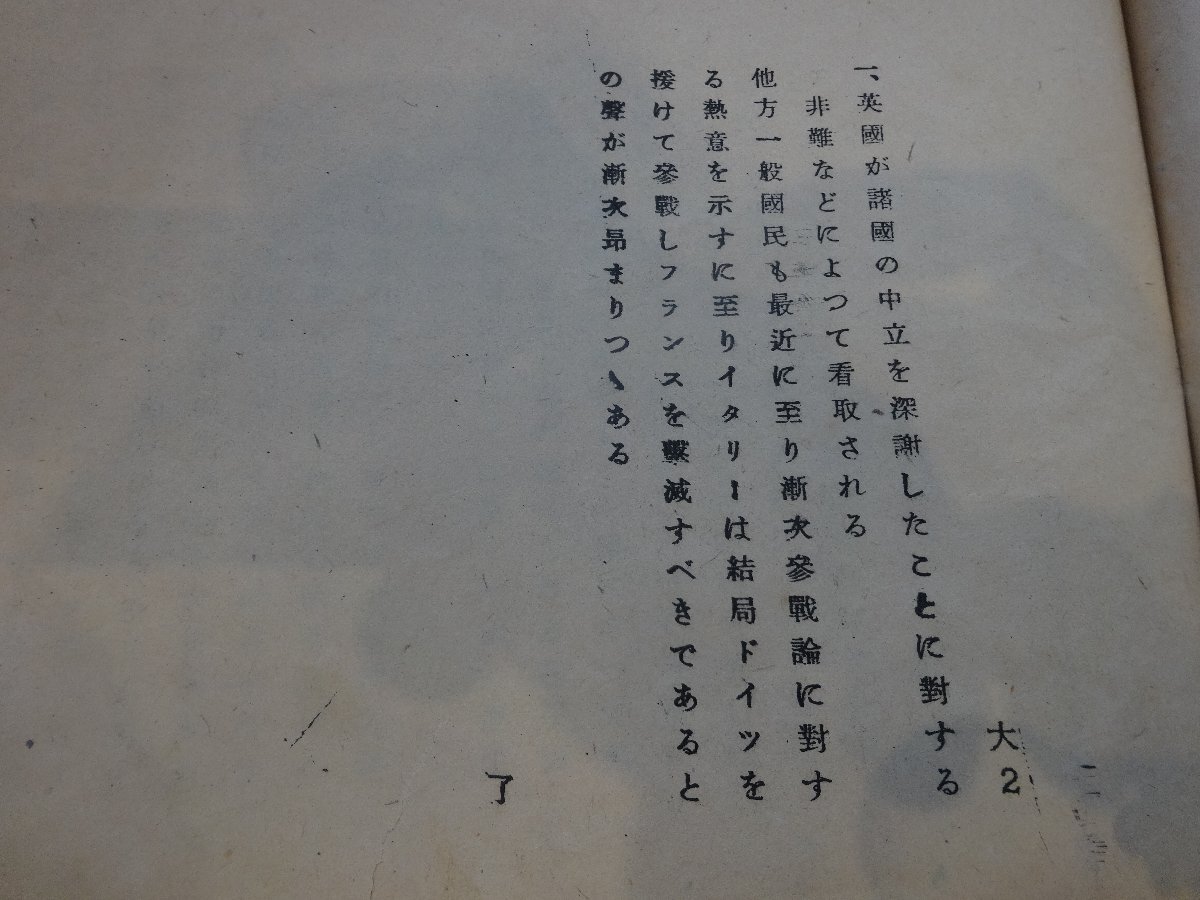 大2
一、英國が諸國の中立を深謝したことに對する
非難などによつて看取される
他方一般國民も最近に至り漸次參戰論に對す
る熱意を示すに至りイタリーは結局ドイツを
援けて參戰しフランスを擊滅すべきであると
の聲が漸次昂まりつゝある
了